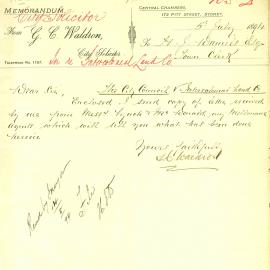 MEMORANDUM.
City Solicitor
From G. C. Waldron,
City Solicitor
CENTRAL CHAMBERS,
172 PITT STREET, SYDNEY.
5 July 189
To H. J. Daniels Esq
Town Clerk
In re Intercolonial Land Co
Dear Sir,
The City Council v Intercolonial Land Co
Enclosed I send copy of letter received
by me from Messrs Lynch & McDonald my Melbourne
Agents which will tell you what has been done
herein
Yours faithfully
G C Waldron